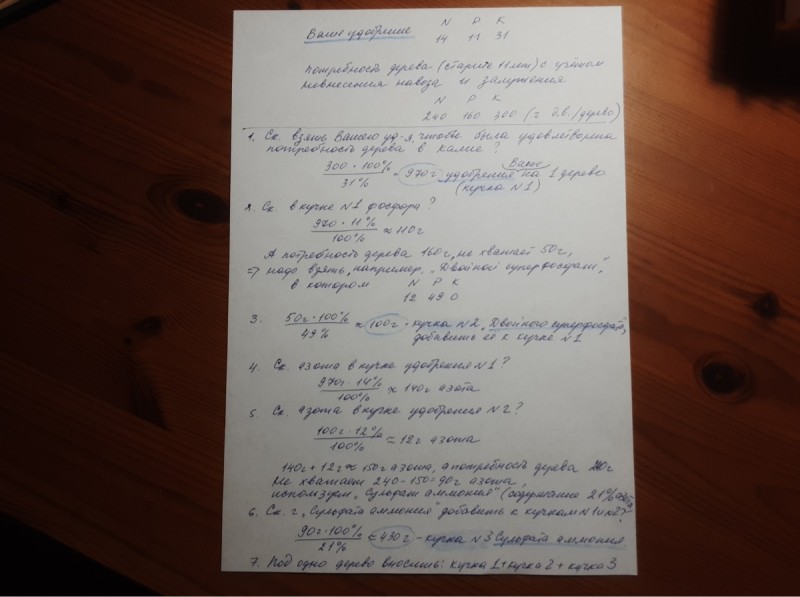 N P K
Ваше удобрение 14 11 31
Потребность дерева (старше 11 лет) с учётом
невнесения навоза и залужения
N P K
240 160 300 (г д.в./дерево)
1. Ск. взять Вашего уд-я, чтобы была удовлетворена
потребность дерева в калие?
300 · 100% / 31% = 970г Ваше удобрения на 1 дерево
(кучка N1)
2. Ск. в кучке N1 фосфора?
970 · 11% / 100% ≈ 110г
А потребность дерева 160г, не хватает 50г,
=> надо взять, например, "Двойной суперфосфат",
в котором N P K
12 49 0
3. 50г · 100% / 49% ≈ 100г - кучка N2 "Двойного суперфосфата",
добавить её к кучке N1
4. Ск. азота в кучке удобрения N1?
970г · 14% / 100% ≈ 140г азота
5. Ск. азота в кучке удобрения N2?
100г · 12% / 100% = 12г азота
140г + 12г ≈ 150г азота, а потребность дерева 240г
Не хватает 240 - 150 = 90г азота,
используем "Сульфат аммония" (содержание 21% азота)
6. Ск. г "Сульфата аммония" добавить к кучкам N1 и N2?
90г · 100% / 21% ≈ 430г - кучка N3 Сульфата аммония
7. Под одно дерево вносить: кучка 1 + кучка 2 + кучка 3